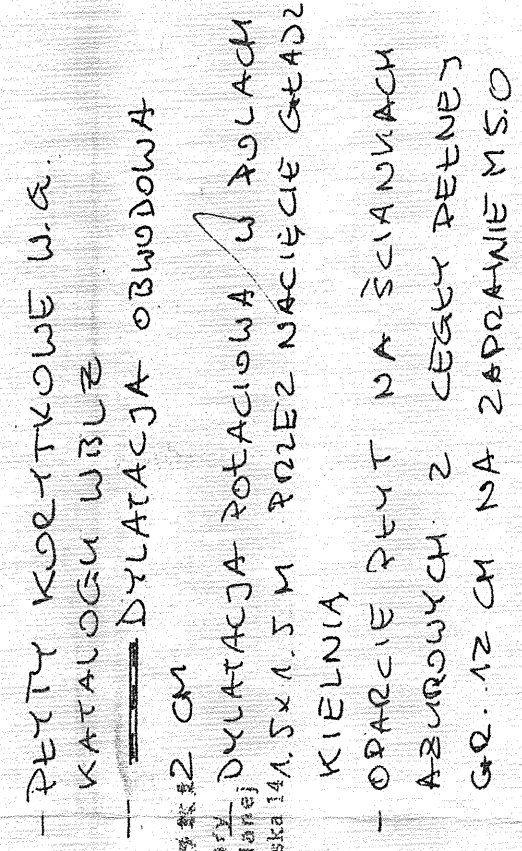 - PŁYTY KORYTKOWE W.G.
KATALOGU WBLZ
- DYLATACJA OBWODOWA
2 CM
- DYLATACJA POŁACIOWA W POLACH
1.5 x 1.5 M PRZEZ NACIĘCIE GŁADZ
KIELNIĄ
- OPARCIE PŁYT NA ŚCIANKACH
AŻUROWYCH Z CEGŁY PEŁNEJ
GR. 12 CM NA ZAPRAWIE M 5.0
lanej
ska 14